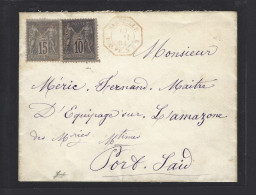 15 10
Monsieur
Méric Fernand. Maitre
D'Equipage sur L'amazone
des Mries Mtimes
Port-Saïd